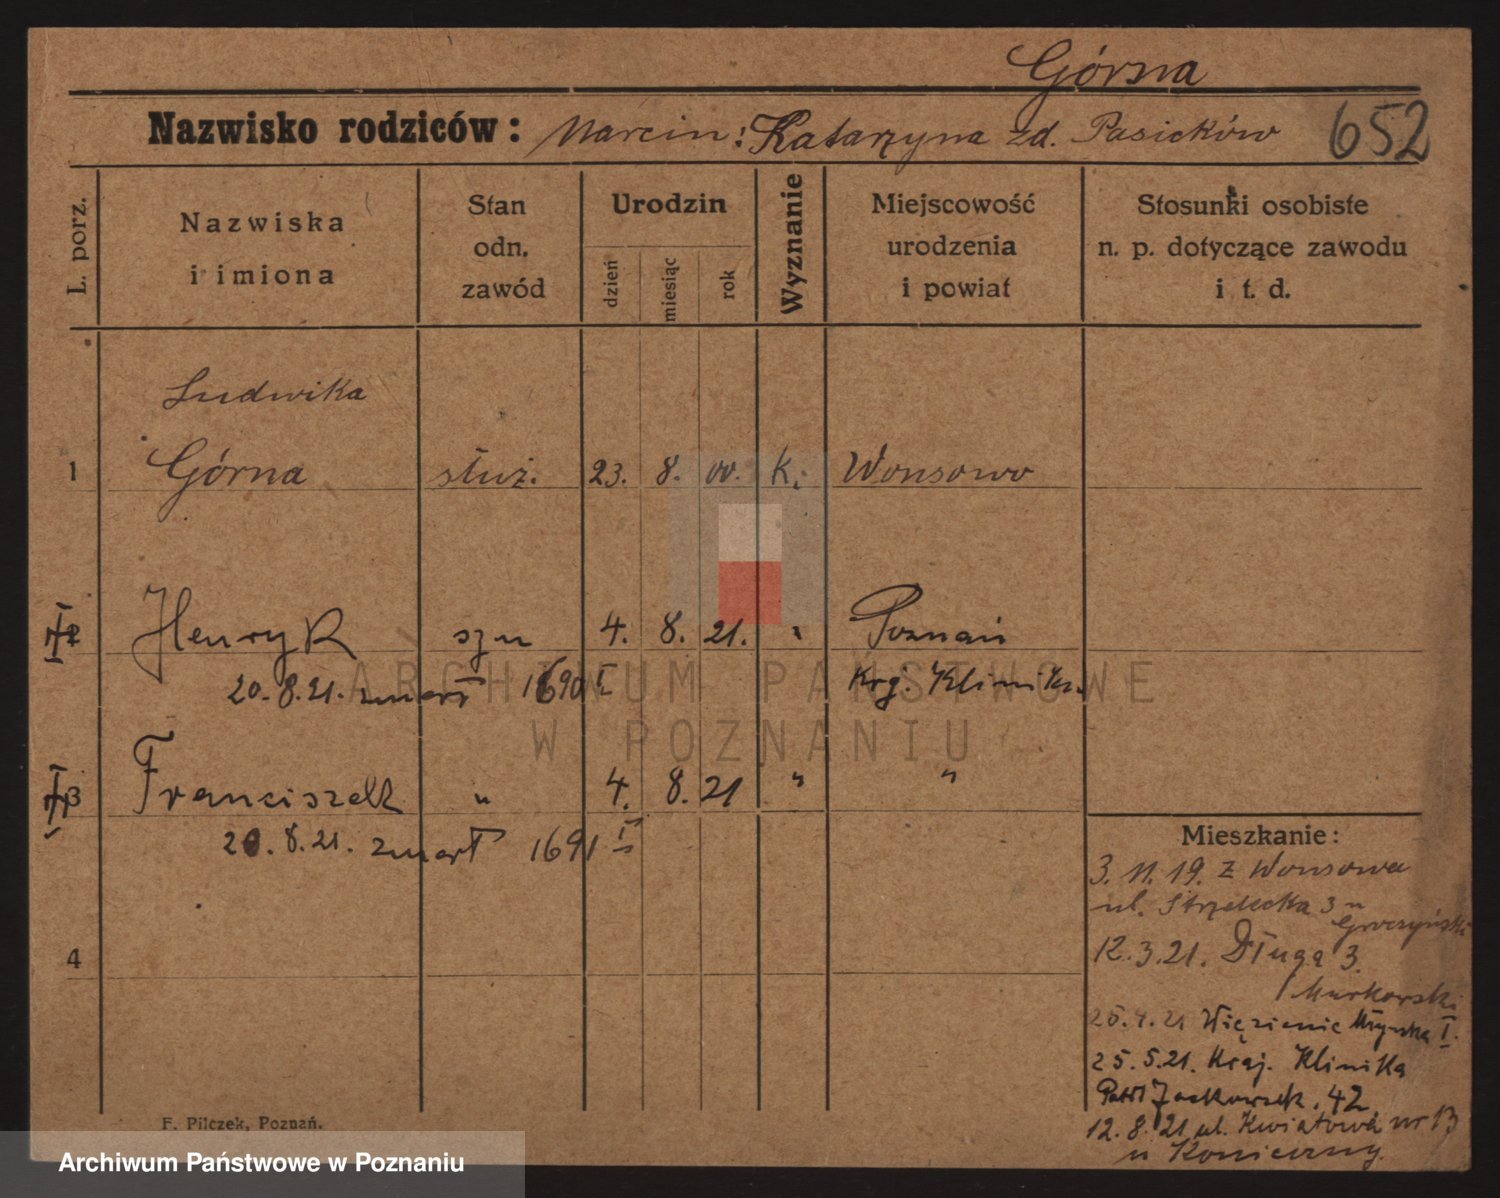 Górna
Nazwisko rodziców: Marcin: Katarzyna zd. Pasieków 652
L. porz.
Nazwiska i imiona
Stan odn. zawód
Urodzin
dzień miesiąc rok
Wyznanie
Miejscowość urodzenia i powiat
Stosunki osobiste n. p. dotyczące zawodu i t. d.
Ludwika
1 Górna służ. 23. 8. 00. K. Wonsowo
2 Henryk syn 4. 8. 21. " Poznań
20.8.21. zmarł 1690 I Krj. Klinika
3 Franciszek " 4. 8. 21 " "
20.8.21. zmarł 1691 I
4
Mieszkanie:
3. 11. 19. z Wonsowa
ul. Strzelecka 3 u
Groczyński
12.3.21. Długa 3.
Murkowski
25.4.21 Więzienie Młyńska I.
25.5.21. Kraj. Klinika
Jackowsk. 42
12.8.21 ul. Kwiatowa nr 13
u Konieczny.
F. Pilczek, Poznań.
ARCHIWUM PAŃSTWOWE
W POZNANIU
Archiwum Państwowe w Poznaniu